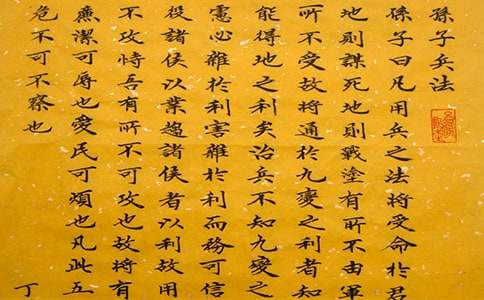 孫子兵法
孫子曰凡用兵之法將受命於君
地則謀死地則戰塗有所不由軍
所不受故將通於九變之利者知
能得地之利矣治兵不知九變之
慮必雜於利害雜於利而務可信
役諸侯以業趨諸侯者以利故用
不攻恃吾有所不可攻也故將有
廉潔可辱也愛民可煩也凡此五
危不可不察也 丁